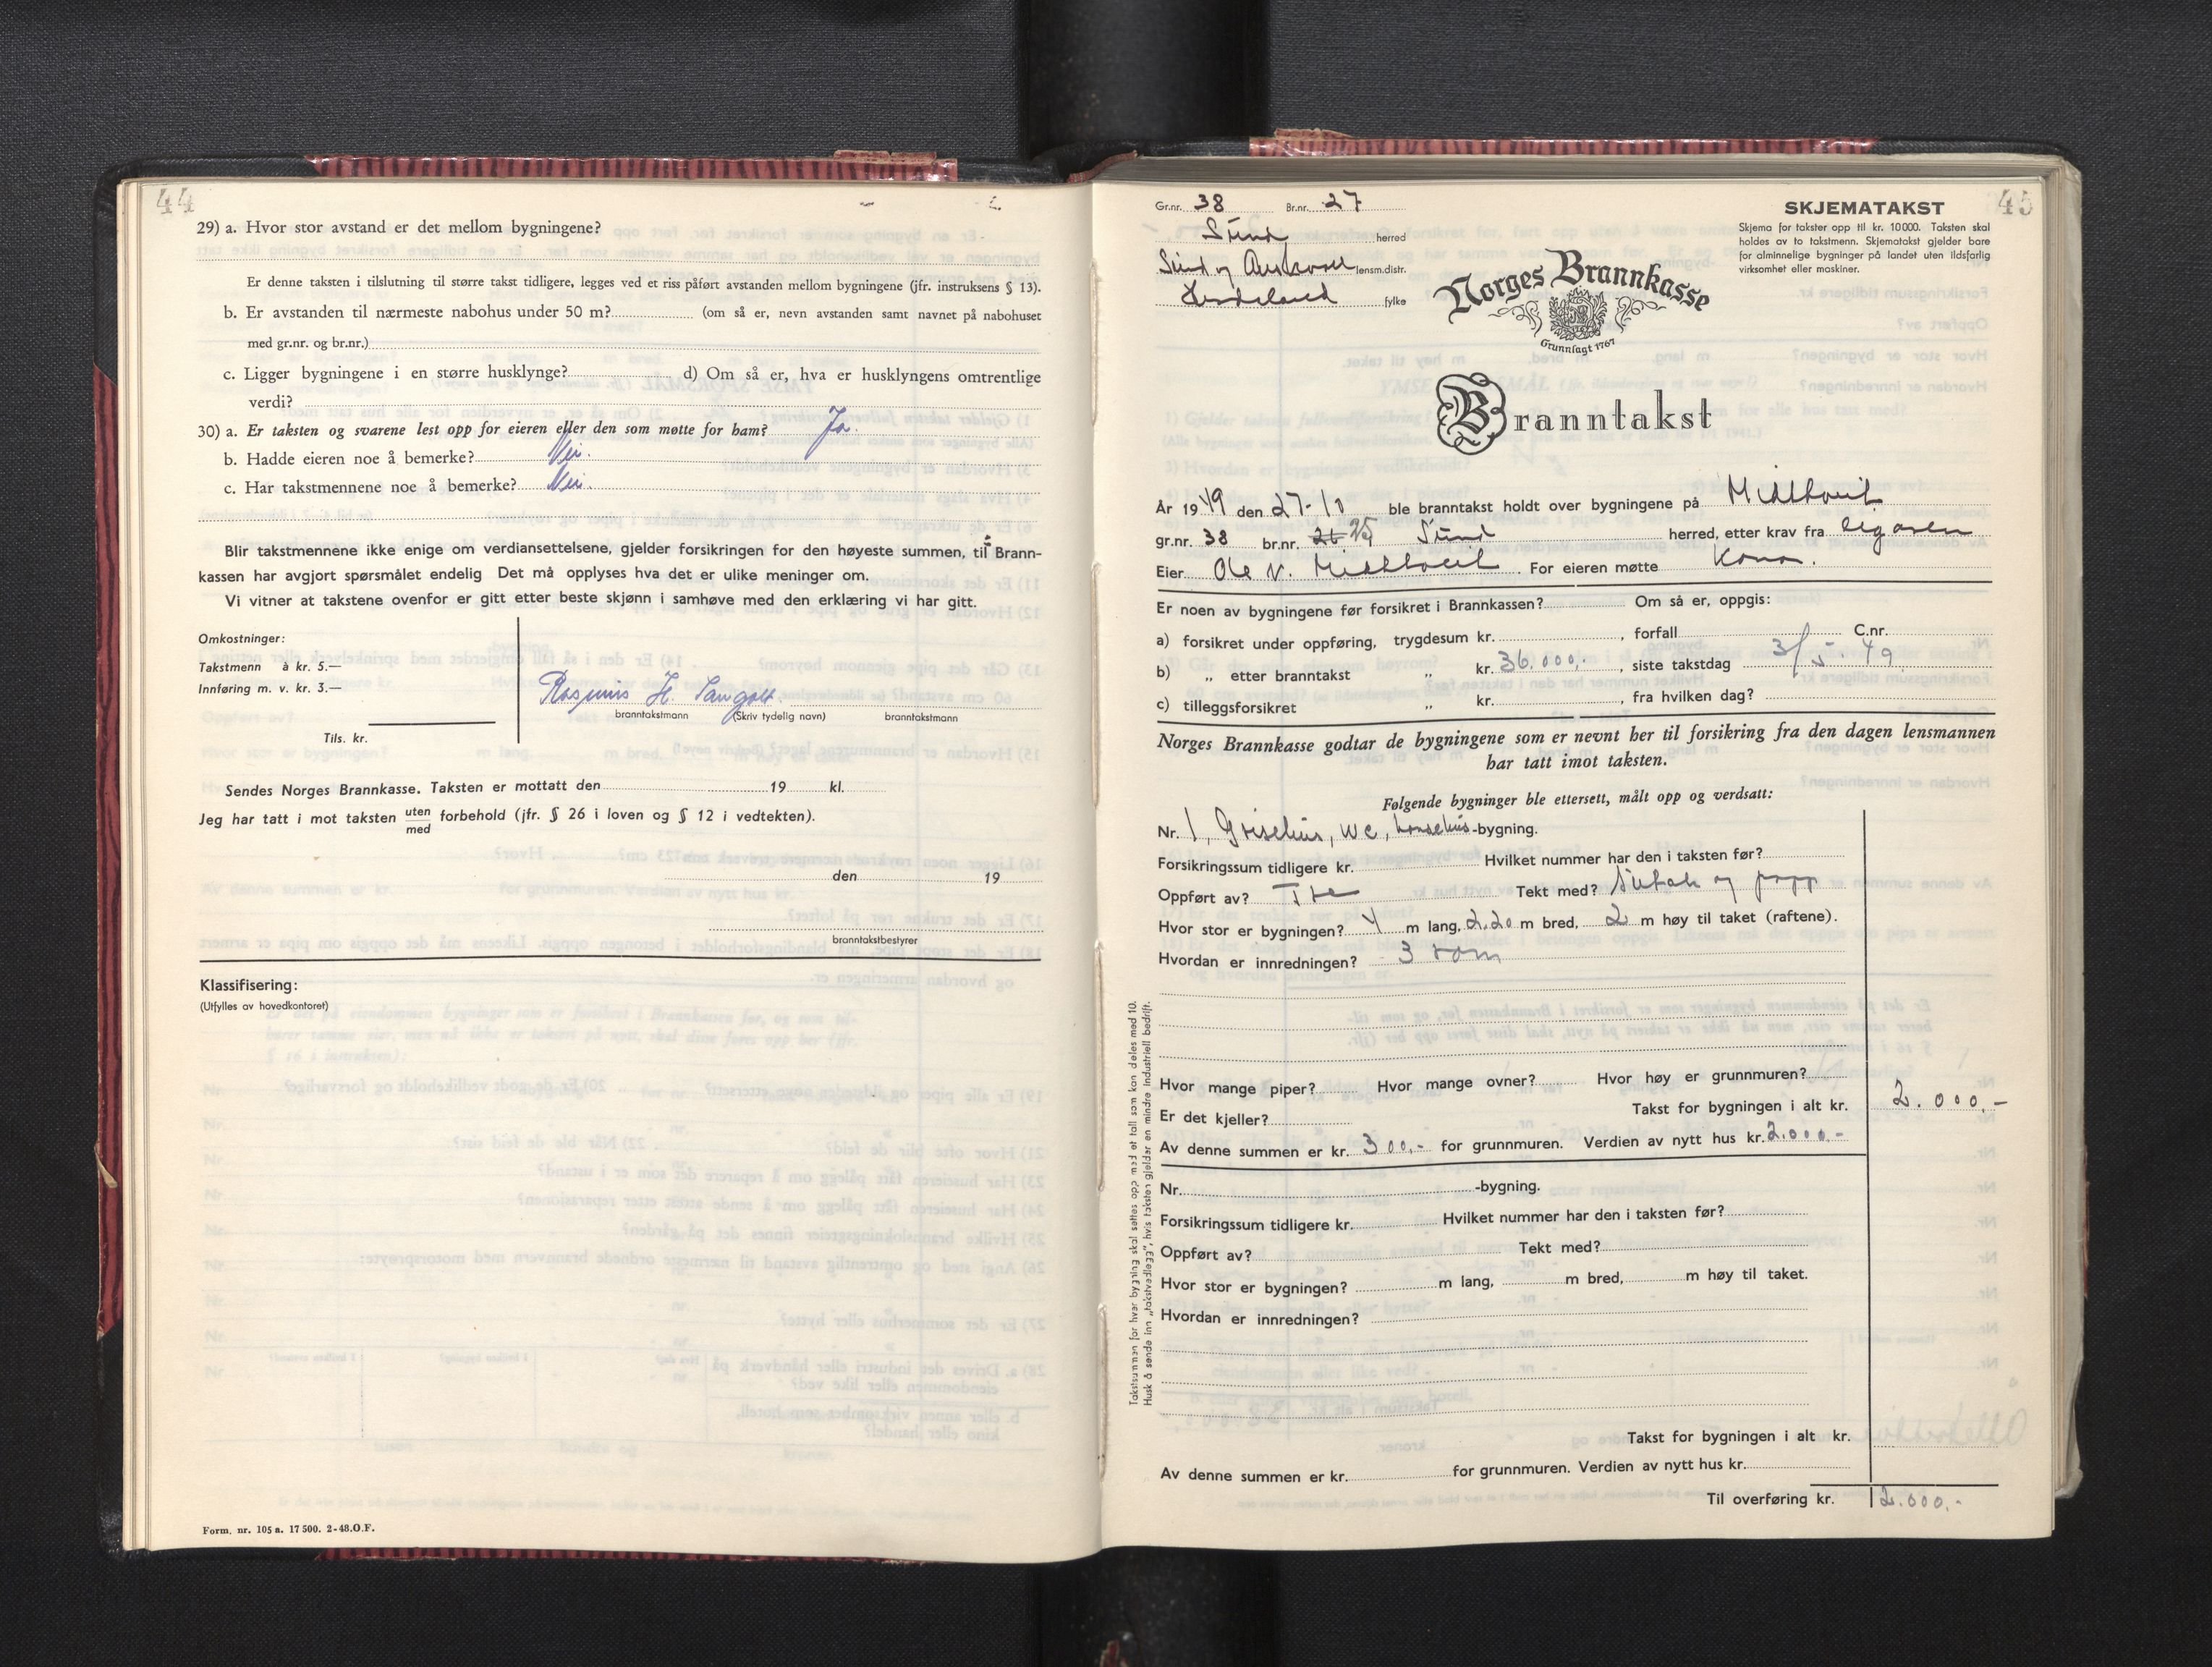 44
29) a. Hvor stor avstand er det mellom bygningene?
Er denne taksten i tilslutning til større takst tidligere, legges ved et riss påført avstanden mellom bygningene (jfr. instruksens § 13).
b. Er avstanden til nærmeste nabohus under 50 m? (om så er, nevn avstanden samt navnet på nabohuset
med gr.nr. og br.nr.)
c. Ligger bygningene i en større husklynge? d) Om så er, hva er husklyngens omtrentlige
verdi?
30) a. Er taksten og svarene lest opp for eieren eller den som møtte for ham? Ja.
b. Hadde eieren noe å bemerke? Nei.
c. Har takstmennene noe å bemerke? Nei.
Blir takstmennene ikke enige om verdiansettelsene, gjelder forsikringen for den høyeste summen, til Brann-
kassen har avgjort spørsmålet endelig Det må opplyses hva det er ulike meninger om.
Vi vitner at takstene ovenfor er gitt etter beste skjønn i samhøve med den erklæring vi har gitt.
Omkostninger:
Takstmenn à kr. 5.—
Innføring m. v. kr. 3.—
Tils. kr.
Rasmus H.
branntakstmann (Skriv tydelig navn) branntakstmann
Sendes Norges Brannkasse. Taksten er mottatt den 19 kl.
Jeg har tatt i mot taksten uten
med forbehold (jfr. § 26 i loven og § 12 i vedtekten).
den 19
branntakstbestyrer
Klassifisering:
(Utfylles av hovedkontoret)
Form. nr. 105 a. 17 500. 2-48.O.F.
45
Gr.nr. 38 Br.nr. 27
Sund herred
Sund og Austevoll lensm.distr.
Hordaland fylke
SKJEMATAKST
Skjema for takster opp til kr. 10000. Taksten skal
holdes av to takstmenn. Skjematakst gjelder bare
for alminnelige bygninger på landet uten ildsfarlig
virksomhet eller maskiner.
Norges Brannkasse
Grunnlagt 1767
Branntakst
År 1949 den 27-10 ble branntakst holdt over bygningene på Midttveit
gr.nr. 38 br.nr. 26 25 Sund herred, etter krav fra eigaren
Eier Ole N. Midttveit. For eieren møtte Kona.
Er noen av bygningene før forsikret i Brannkassen? Om så er, oppgis:
a) forsikret under oppføring, trygdesum kr. , forfall C.nr.
b) „ etter branntakst „ kr. 36.000,- , siste takstdag 3/5-49
c) tilleggsforsikret „ kr. , fra hvilken dag?
Norges Brannkasse godtar de bygningene som er nevnt her til forsikring fra den dagen lensmannen
har tatt imot taksten.
Følgende bygninger ble ettersett, målt opp og verdsatt:
Nr. 1, Grisehus, WC, hønsehus-bygning.
Forsikringssum tidligere kr. Hvilket nummer har den i taksten før?
Oppført av? Tre Tekt med? og papp
Hvor stor er bygningen? 4 m lang, 2,20 m bred, 2 m høy til taket (raftene).
Hvordan er innredningen? 3 rom
Hvor mange piper? Hvor mange ovner? Hvor høy er grunnmuren?
Er det kjeller? Takst for bygningen i alt kr. 2.000,-
Av denne summen er kr. 300,- for grunnmuren. Verdien av nytt hus kr. 2.000,-
Nr. -bygning.
Forsikringssum tidligere kr. Hvilket nummer har den i taksten før?
Oppført av? Tekt med?
Hvor stor er bygningen? m lang, m bred, m høy til taket.
Hvordan er innredningen?
Takst for bygningen i alt kr.
Av denne summen er kr. for grunnmuren. Verdien av nytt hus kr.
Til overføring kr. 2.000,-
Takstsummen for hver bygning skal settes opp med et tall som kan deles med 10.
Husk å sende inn „Takstvedlegg", hvis taksten gjelder en mindre industriell bedrift.